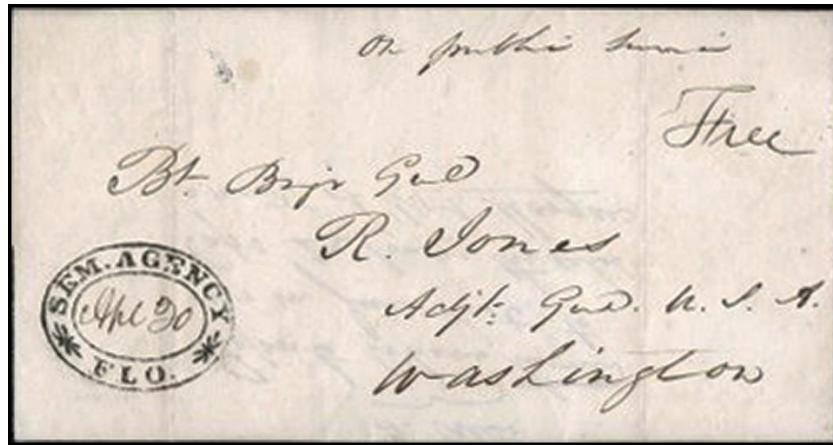 on public service
Free
Bt. Brigr Genl
R. Jones
Adjt. Genl. U. S. A.
Washington
SEM. AGENCY
Apl 20
FLO.